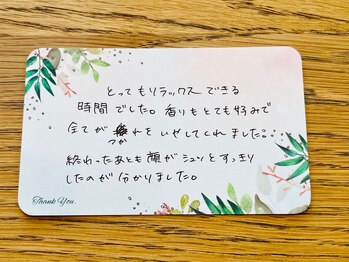 とってもリラックスできる
時間でした。香りもとても好みで
全てが疲れをいやしてくれました...
つか
終わったあとも顔がシュッとすっきり
したのが分かりました。
Thank You.